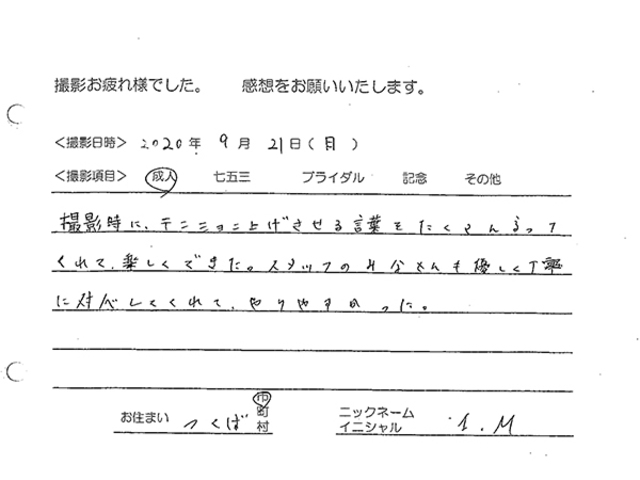 撮影お疲れ様でした。 感想をお願いいたします。
<撮影日時> 2020年 9月 21日(月)
<撮影項目> 成人 七五三 ブライダル 記念 その他
撮影時に、テンション上げさせる言葉をたくさん言って
くれて、楽しくできた。スタッフのみなさんも優しく丁寧
に対応してくれて、やりやすかった。
お住まい つくば 市町村
ニックネーム イニシャル I.M